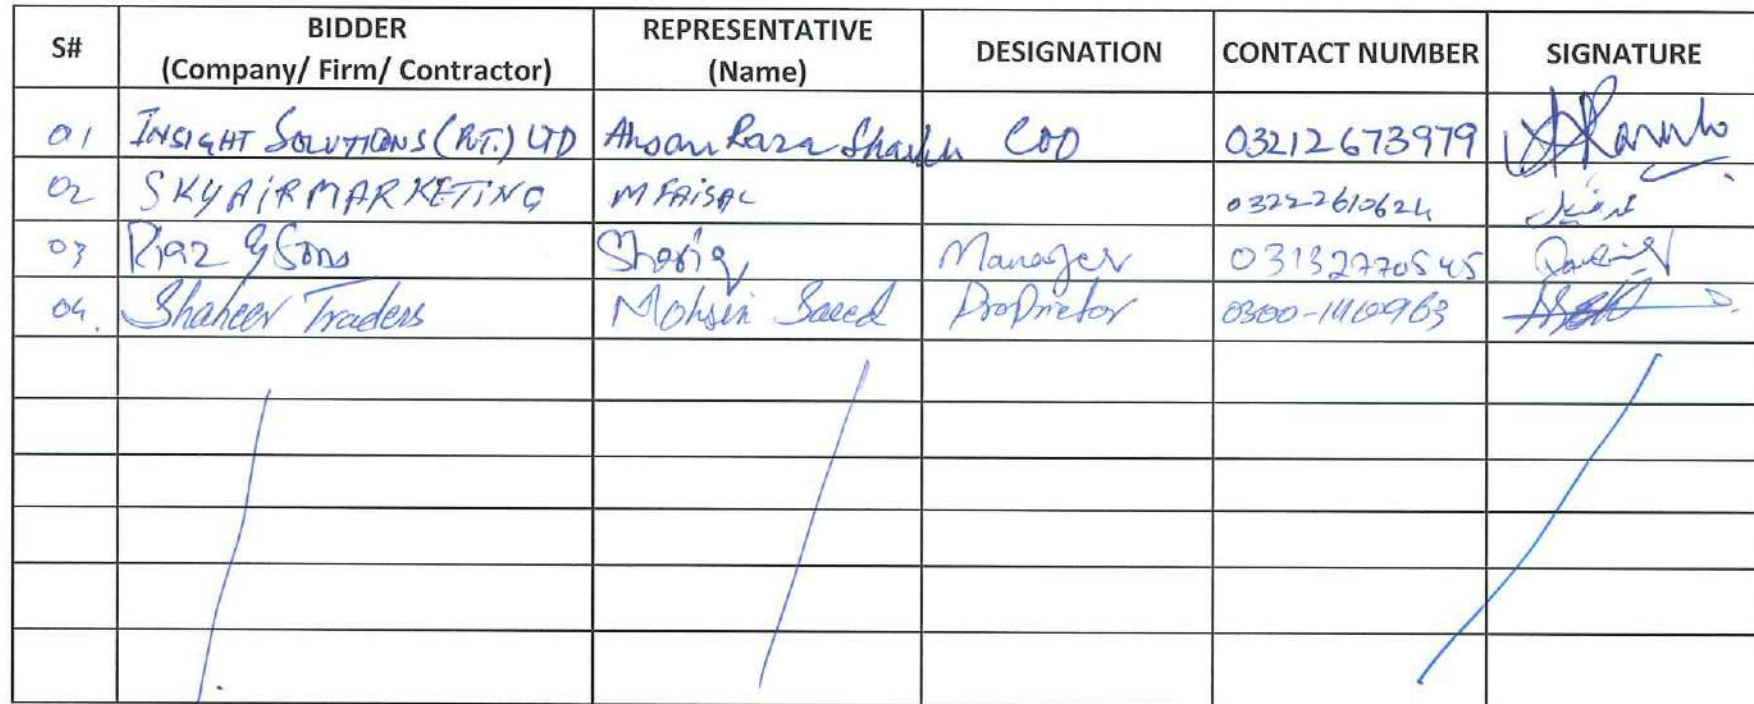 S# BIDDER (Company/ Firm/ Contractor) REPRESENTATIVE (Name) DESIGNATION CONTACT NUMBER SIGNATURE
01 INSIGHT SOLUTIONS (PVT.) LTD Ahsan Raza Shaikh COO 03212673979
02 SKY AIR MARKETING M FAISAL 03222610624
03 Riaz & Sons Shariq Manager 03132770545
04. Shaheer Traders Mohsin Saeed Proprietor